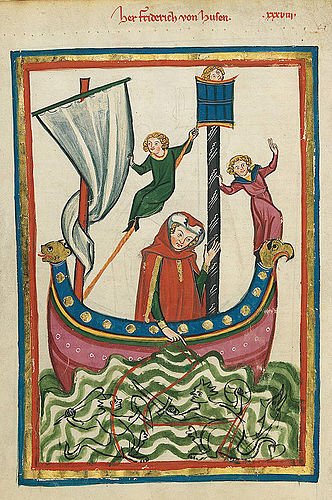 Her Friderich von Husen. xxxviij